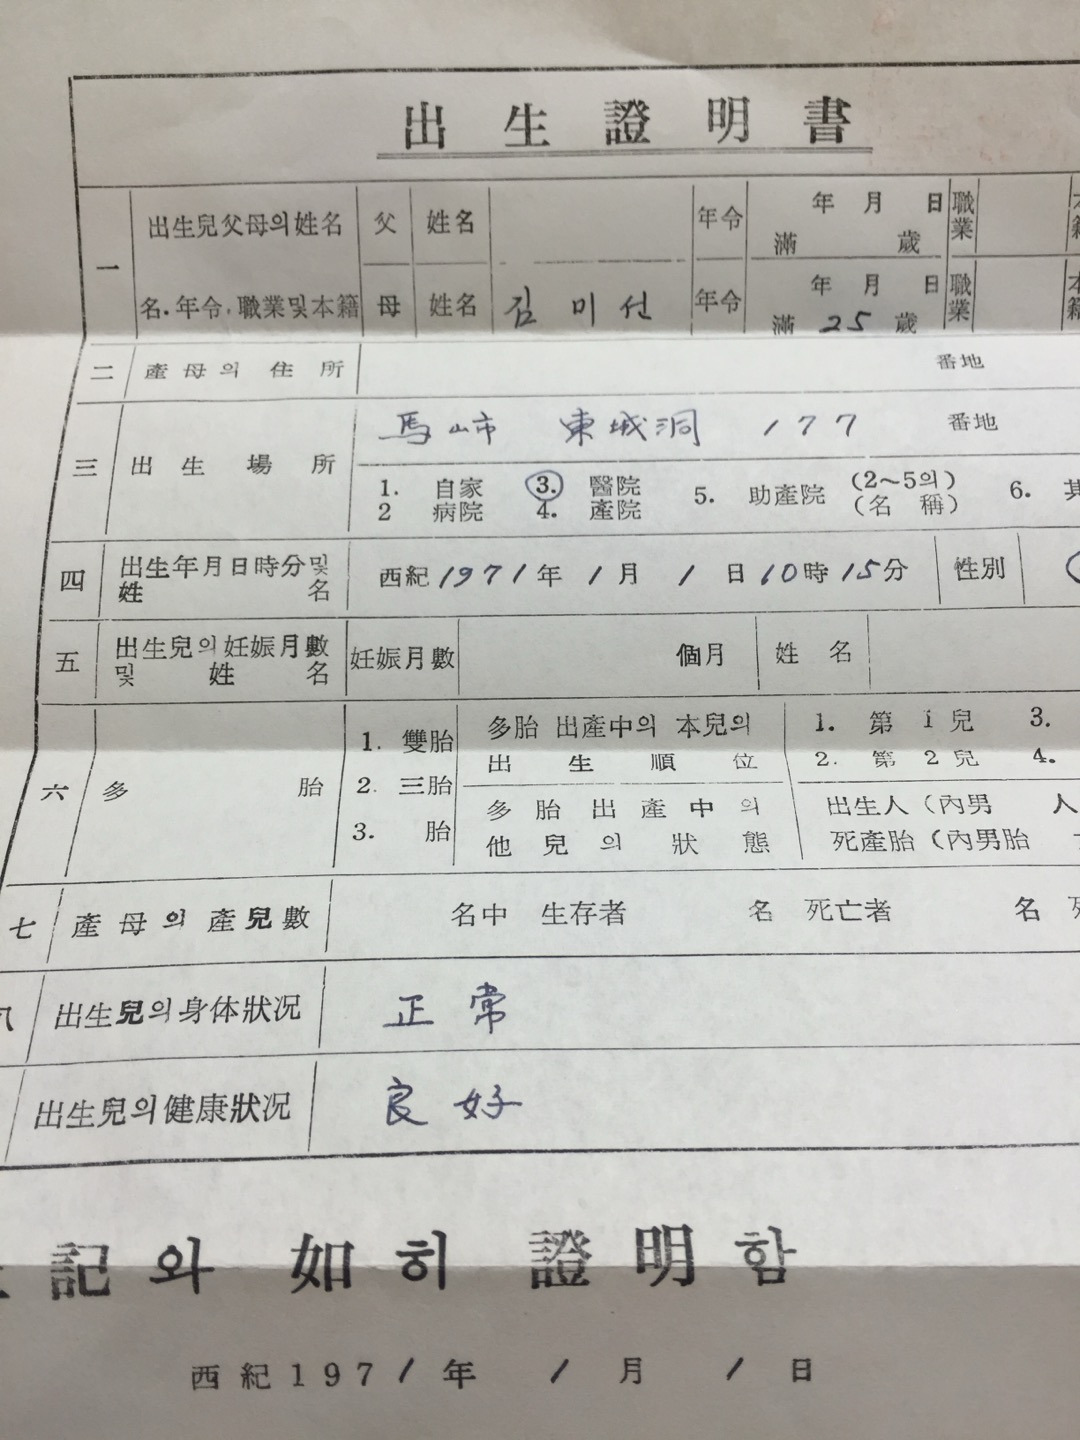 出生證明書
一 出生兒父母의姓名 父 姓名 年令 年 月 日 滿 歲 職業
名.年令.職業및本籍 母 姓名 김미선 年令 年 月 日 滿 25 歲 職業
二 產母의 住所 番地
三 出生場所 馬山市 東城洞 177 番地
1. 自家 3. 醫院 5. 助產院 (2~5의) 6.
2 病院 4. 產院 (名 稱)
四 出生年月日時分및 姓名 西紀 1971年 1月 1日 10時 15分 性別
五 出生兒의妊娠月數 및 姓名 妊娠月數 個月 姓名
六 多胎 1. 雙胎 多胎 出產中의 本兒의 1. 第 1 兒 3.
2. 三胎 出生順位 2. 第 2 兒 4.
3. 胎 多胎出產中의 出生人(內男 人
他兒의狀態 死產胎(內男胎
七 產母의產兒數 名中 生存者 名 死亡者 名
八 出生兒의身体狀况 正常
出生兒의健康狀况 良好
記와 如히 證明함
西紀1971年 1月 1日